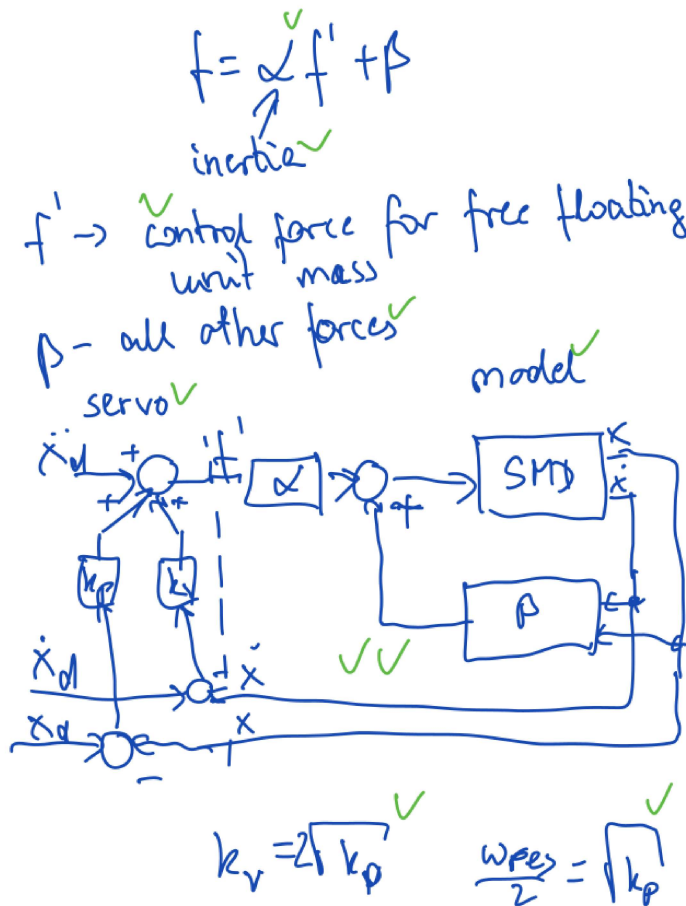 f = α f' + β
inertia
f' → control force for free floating
unit mass
β - all other forces
servo
model
ẍd
+
+
+
f'
α
+
SMD
x
ẋ
kp
kv
β
ẋd
ẋ
xd
x
-
kv = 2√kp
ωres/2 = √kp